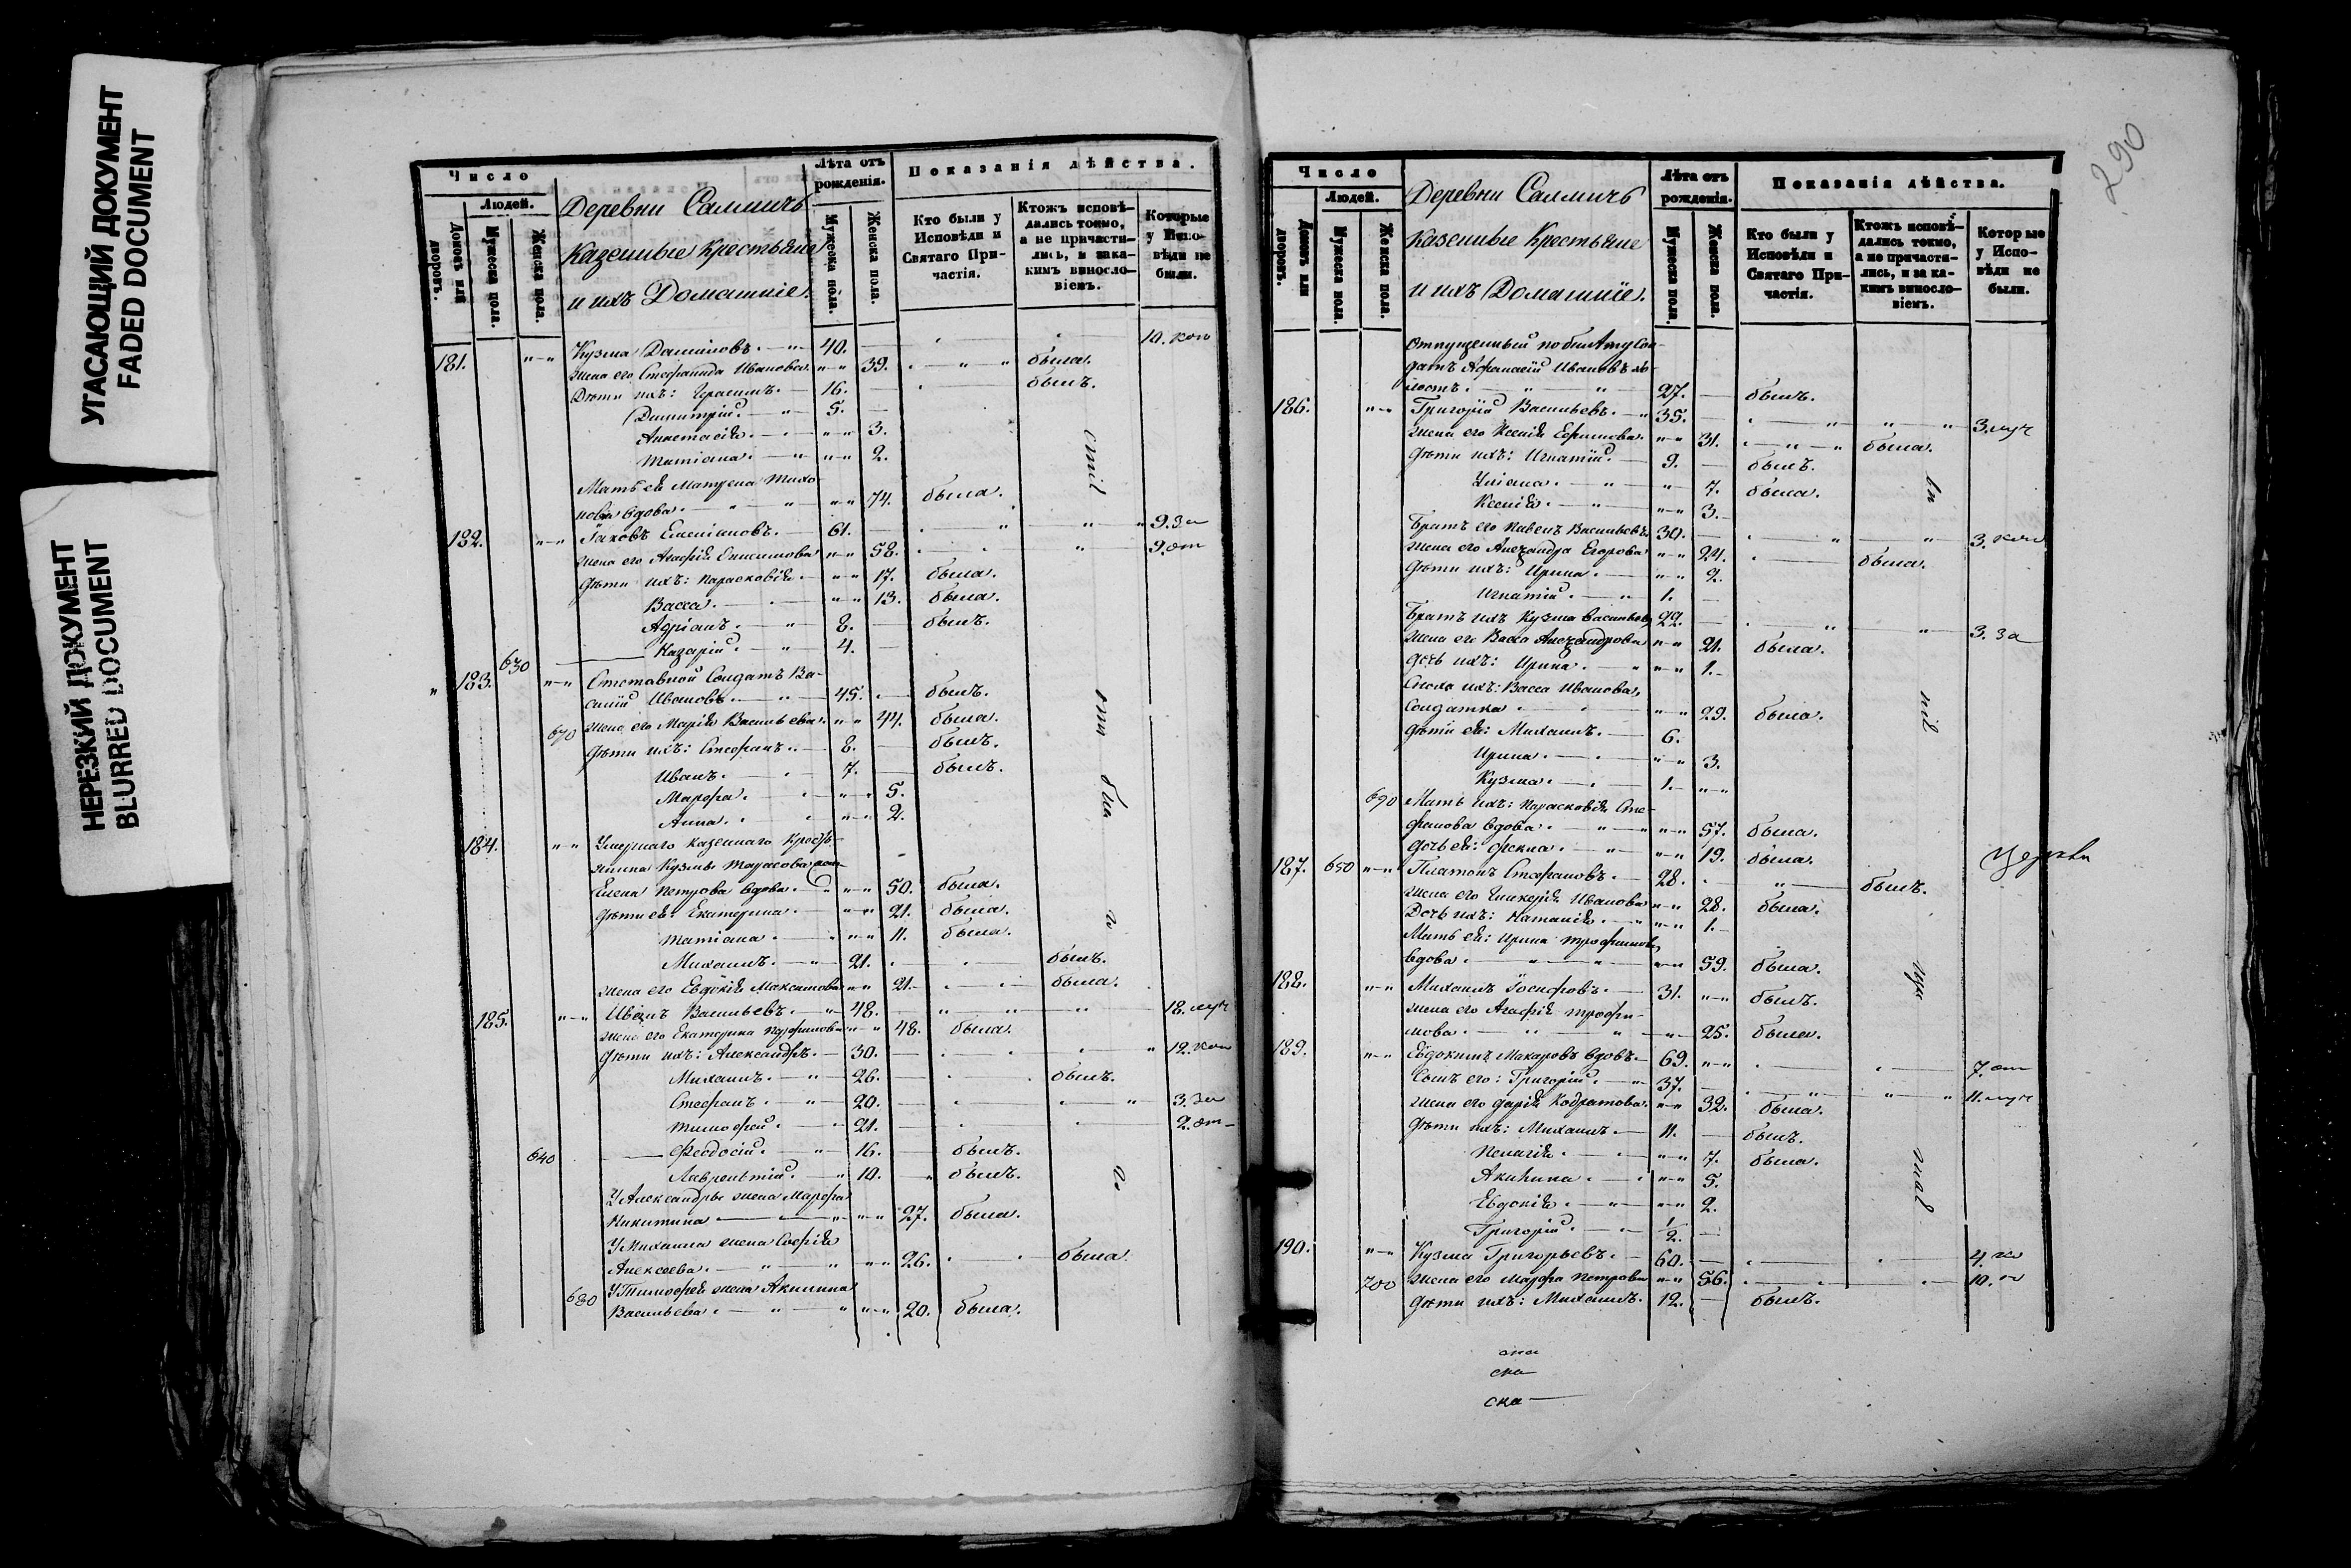 УГАСАЮЩИЙ ДОКУМЕНТ
FADED DOCUMENT
НЕРЕЗКИЙ ДОКУМЕНТ
BLURRED DOCUMENT
Число
Людей.
Домовъ или дворовъ.
Мужеска пола.
Женска пола.
Деревни
Казенные Крестьяне
и ихъ Домашніе.
Лѣта отъ рожденія.
Мужеска пола.
Женска пола.
Показанія дѣйства.
Кто были у Исповѣди и Святаго Причастія.
Ктожъ исповѣдались токмо, а не причастились, и закакимъ винословіемъ.
Которые у Исповѣди не были.
181. Кузма Даниловъ. 40. 10.
жена его Стефанида Иванова. 39. была.
Дѣти ихъ: Герасимъ. 16. былъ.
Димитрій. 5.
Анастасія. 3.
Татіана. 2.
Мать ея Матрена Тихо
нова вдова. 74. была.
182. Іаковъ Емеліановъ. 61. 9. за
жена его Агафія Онисимова 58. 9. от
дѣти ихъ: Парасковія. 17. была.
Васса. 13. была.
Адріанъ. 8. былъ.
630 Назарій. 4.
183. Отставной Солдатъ Ва-
силій Ивановъ. 45. былъ.
670 жена его Марія Васильева. 44. была.
дѣти ихъ: Стефанъ. 8. былъ.
Иванъ. 7. былъ.
Марфа. 5.
Анна. 2.
184. Умершаго казеннаго Кресть-
янина Кузмы Тарасова
Елена Петрова вдова. 50. была.
дѣти ея: Екатерина. 21. была.
Татіана. 11. была.
Михаилъ. 21. былъ.
жена его Евдокія Максимова 21. была.
185. Иванъ Васильевъ. 48. 18.
жена его Екатерина 48. была.
дѣти ихъ: Александръ. 30. 12.
Михаилъ. 26. былъ.
Стефанъ. 20. 3. за
Тимофей. 21. 2. от
640 Феодосій. 16. былъ.
Лаврентій. 10. былъ.
У Александры жена Марфа
Никитина 27. была.
У Михаила жена Софія
Алексеева. 26. была.
680 У Тимофея жена Акилина
Васильева. 20. была.
290
Число
Людей.
Домовъ или дворовъ.
Мужеска пола.
Женска пола.
Деревни
Казенные Крестьяне
и ихъ Домашніе.
Лѣта отъ рожденія.
Мужеска пола.
Женска пола.
Показанія дѣйства.
Кто были у Исповѣди и Святаго Причастія.
Ктожъ исповѣдались токмо, а не причастились, и за какимъ винословіемъ.
Которые у Исповѣди не были.
Отпущенный по билету Сол-
датъ Афанасій Ивановъ хо-
лостъ. 27. былъ.
186. Григорій Васильевъ. 35. 3.
жена его Ксенія Ефимова. 31. была.
дѣти ихъ: Игнатій. 9. былъ.
Уліана. 7. была.
Ксенія. 3.
Братъ его Павелъ Васильевъ 30. 3.
жена его Александра Егорова 24. была.
дѣти ихъ: Ирина. 2.
Игнатій. 1.
Братъ ихъ Кузма Васильевъ 22. 3. за
жена его Васса Александрова 21. была.
дочь ихъ: Ирина. 1.
Сноха ихъ: Васса Иванова,
Солдатка 29. была.
дѣти ея: Михаилъ. 6.
Ирина. 3.
Кузма. 1.
690 Мать ихъ: Парасковія Сте-
фанова вдова. 57. была.
дочь ея: Фекла. 19. была.
187. 650 Платонъ Стефановъ. 28. былъ. Церкви
жена его Гликерія Иванова 28. была.
Дочь ихъ: Наталія. 1.
Мать ея: Ирина Трофимова
вдова. 59. была.
188. Михаилъ Іосифовъ. 31. былъ.
жена его Агафія Трофи-
мова. 25. была.
189. Евдокимъ Макаровъ вдовъ. 69. 7. от
Сынъ его: Григорій. 37. 11.
жена его Дарія Кодратова. 32. была.
дѣти ихъ: Михаилъ. 11. былъ.
Пелагія. 7. была.
Акилина. 5.
Евдокія. 2.
Григорій. 1/2.
190. Кузма Григорьевъ. 60. 4.
700 жена его Марфа Петрова 56. 10.
дѣти ихъ: Михаилъ. 12. былъ.
ска
ска
ска